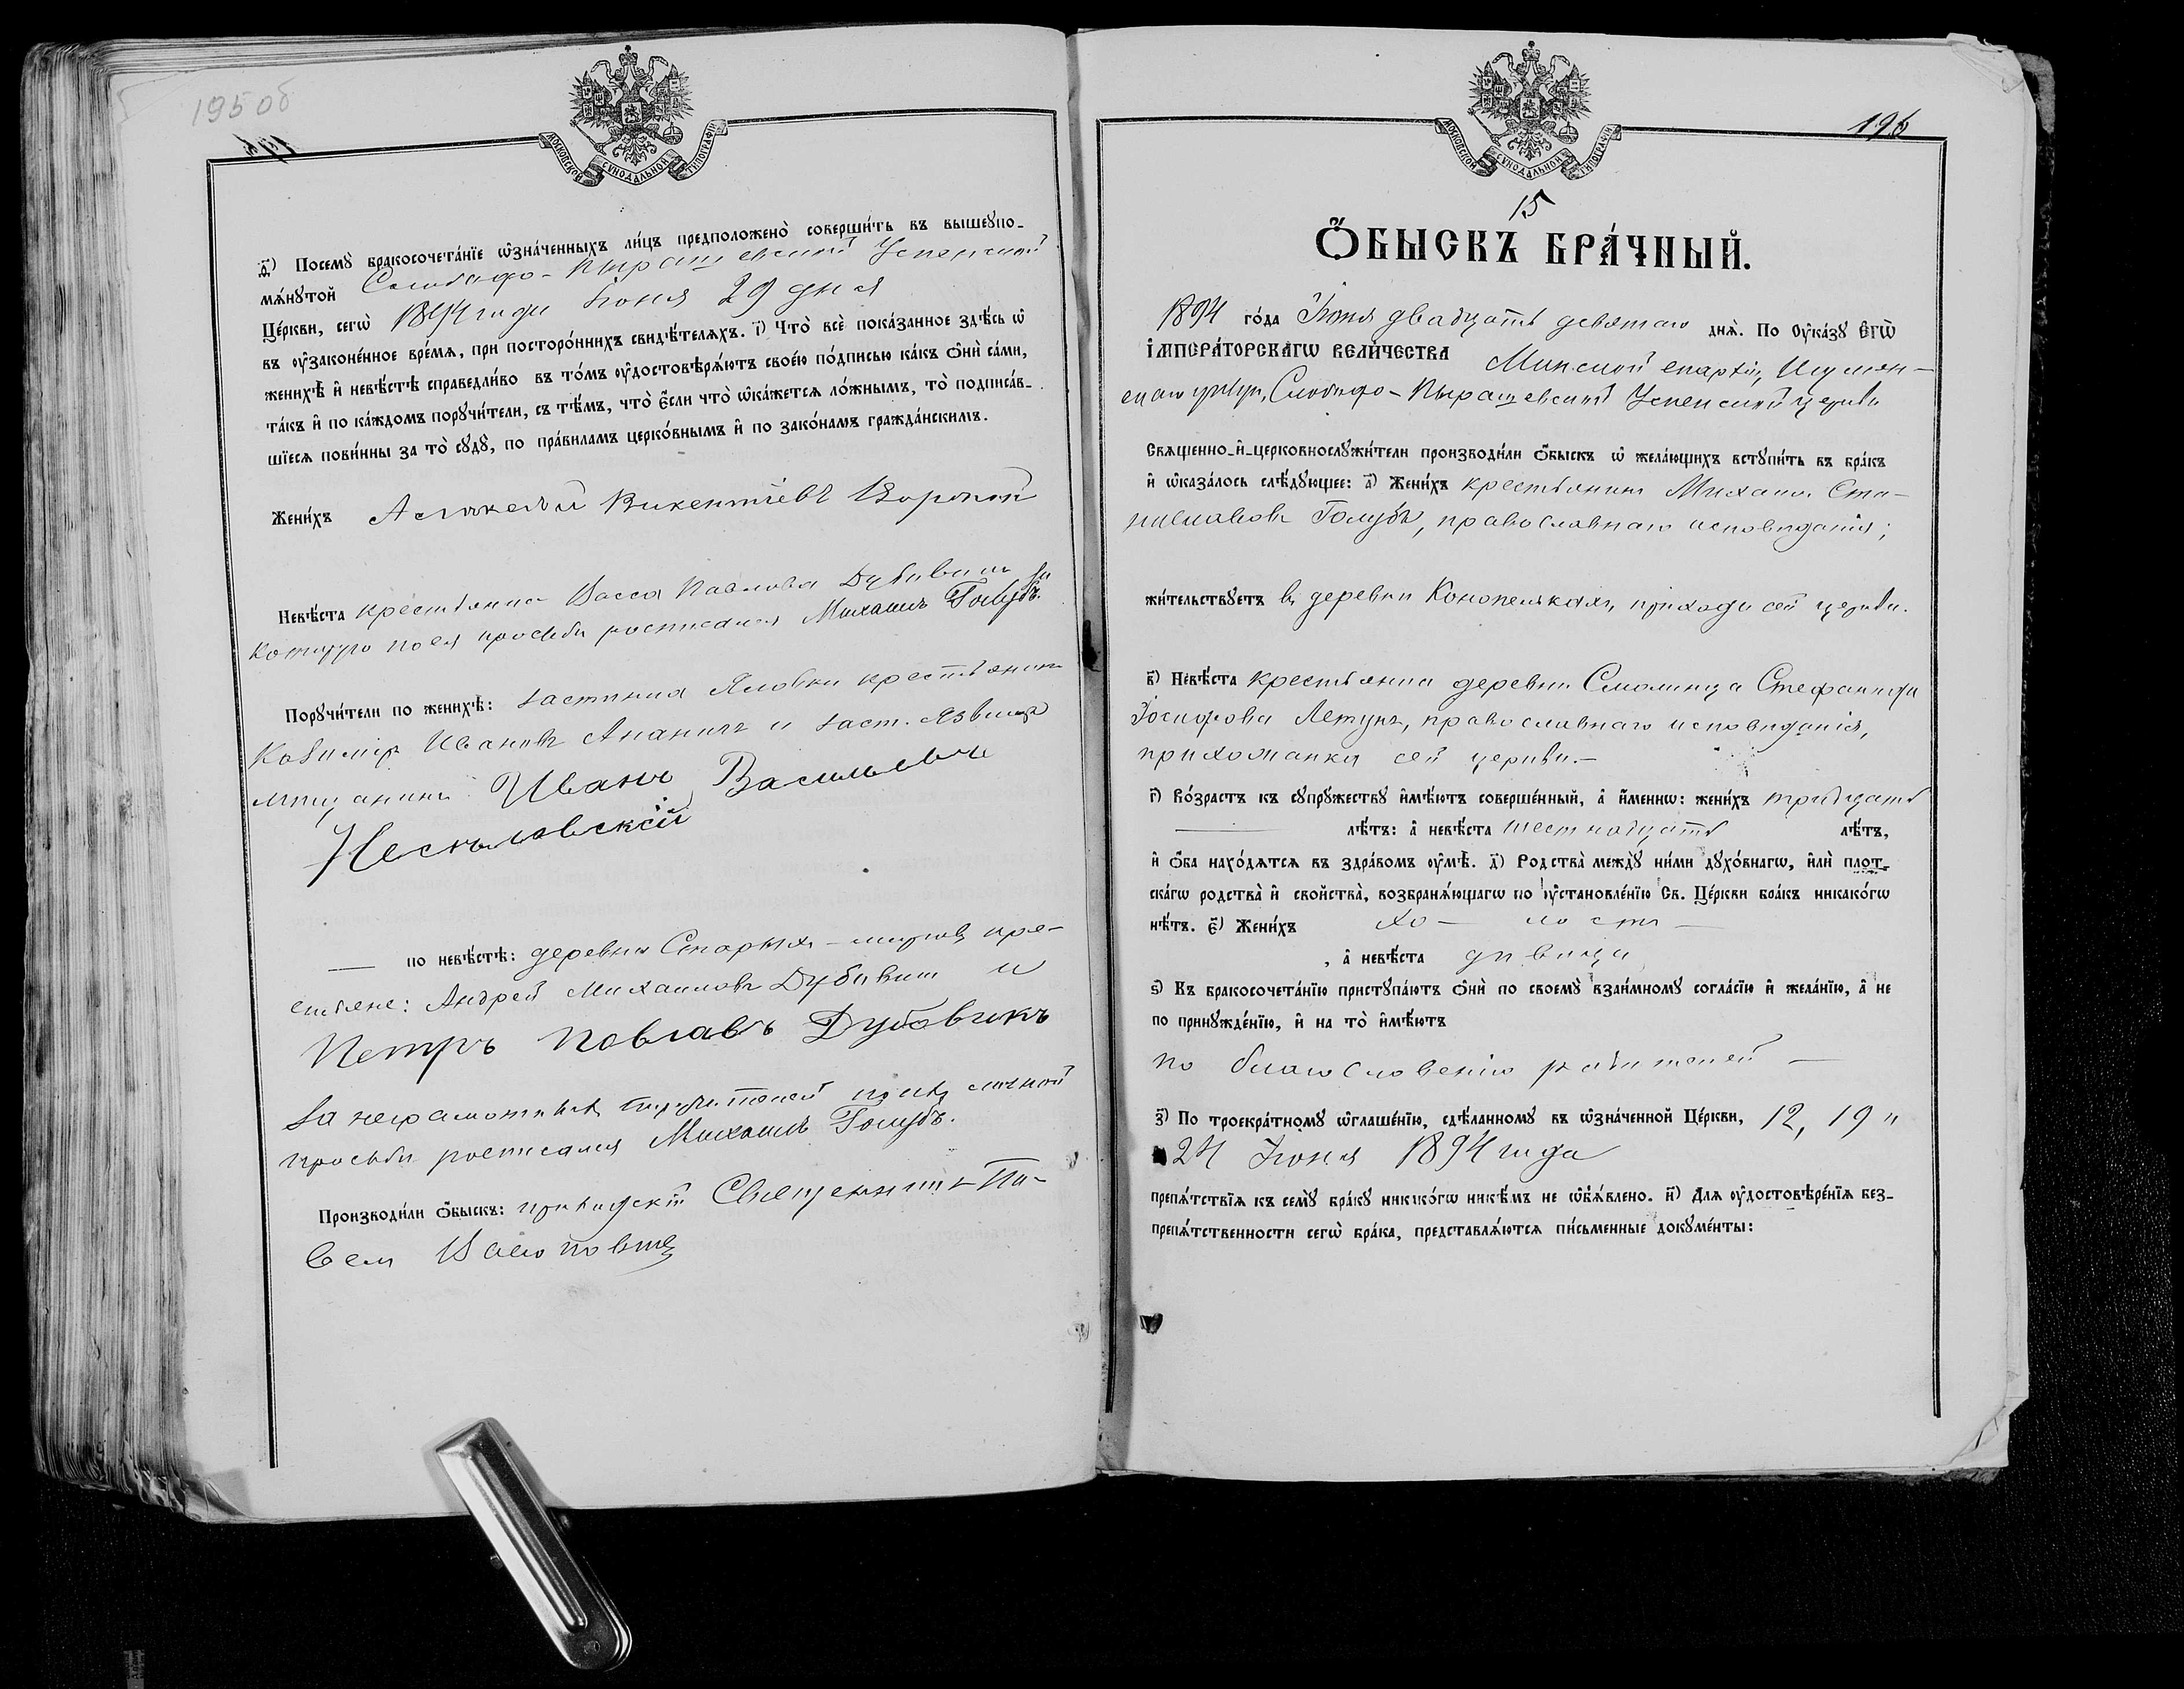 195 об
МОСКОВСКОЙ СѴНОДАЛЬНОЙ ТИПОГРАФІИ
ѳ҃) Посемꙋ̀ бракосочета́нїе ѡ҆зна́ченныхъ ли́цъ предположено̀ соверши́ть въ вышеꙋпо-
мѧ́нꙋтой Слободо-Пырашевской Успенской
Це́ркви, сегѡ̀ 1894 года Іюня 29 дня
въ ᲂу҆законе́нное вре́мѧ, при посторо́ннихъ свидѣ́телѧхъ. і҃) Что̀ всѐ пока́занное здѣ́сь ѡ҆
женихѣ̀ и҆ невѣ́стѣ справедли́во въ то́мъ ᲂу҆достовѣрѧ́ютъ свое́ю по́дписью ка́къ ѻ҆нѝ са́ми,
та́къ и҆ по ка́ждомъ порꙋчи́тели, съ тѣ́мъ, что̀ є҆́сли что̀ ѡ҆ка́жетсѧ ло́жнымъ, то̀ подписа́в-
шїесѧ пови́нны за то̀ сꙋдꙋ̀, по пра́виламъ церко́внымъ и҆ по зако́намъ гражда́нскимъ.
Жени́хъ Викентіевъ
Невѣ́ста крестьянка Васса Павлова за
которую по ея просьбѣ росписался Михаилъ Голубъ.
Порꙋчи́тели по женихѣ̀: застѣнка Яловки крестьянинъ
Казиміръ Ивановъ Ананичъ и заст.
мѣщанинъ Иванъ Васильевъ
по невѣ́стѣ: деревни кре-
стьяне: Андрей Михаиловъ Дубовик и
Петръ Павлавъ Дубовикъ
За неграмотныхъ поручителей по ихъ личной
просьбѣ росписался Михаилъ Голубъ.
Производи́ли ѻ҆́быскъ: приходскій Священникъ Па-
вел
196
МОСКОВСКОЙ СѴНОДАЛЬНОЙ ТИПОГРАФІИ
15
Ѻ҆́БЫСКЪ БРА́ЧНЫЙ.
1894 го́да Іюня двадцать девятаго днѧ̀. По ᲂу҆ка́зꙋ Є҆гѡ̀
І҆мпера́торскагѡ вели́чества Минской епархіи, Игумен-
скаго уѣзда, Слободо-Пырашевской Успенской церкви
Свѧще́нно-и҆-церковнослꙋжи́тели производи́ли ѻ҆́быскъ ѡ҆ жела́ющихъ встꙋпи́ть въ бра́къ
и҆ ѡ҆каза́лось слѣ́дꙋющее: а҃) Жени́хъ крестьянинъ Михаилъ Ста-
ниславовъ Голубъ, православнаго исповѣданія;
жи́тельствꙋетъ въ деревни Конопелькахъ, прихода сей церкви.
в҃) Невѣ́ста крестьянка деревни Смолинца Стефанида
Летунъ, православнаго исповѣданія,
прихожанка сей церкви.—
г҃) Во́зрастъ къ сꙋпрꙋ́жествꙋ и҆мѣ́ютъ соверше́нный, а҆ и҆́меннѡ: жени́хъ тридцать
лѣ́тъ: а҆ невѣ́ста шестнадцать лѣ́тъ,
и҆ ѻ҆́ба нахо́дѧтсѧ въ здра́вомъ ᲂу҆мѣ̀. д҃) Родства̀ междꙋ̀ ни́ми дꙋхо́внагѡ, и҆лѝ плот-
ска́гѡ родства̀ и҆ сво́йства, возбранѧ́ющагѡ по ᲂу҆становле́нїю Св. Це́ркви бра́къ никако́гѡ
нѣ́тъ. є҃) Жени́хъ хо— лостъ —
, а҆ невѣ́ста дѣвица
ѕ҃) Къ бракосочета́нїю пристꙋпа́ютъ ѻ҆нѝ по своемꙋ̀ взаи́мномꙋ согла́сїю и҆ жела́нїю, а҆ не
по принꙋжде́нїю, и҆ на то̀ и҆мѣ́ютъ
по благословенію родителей —
з҃) По троекра́тномꙋ ѡ҆глаше́нїю, сдѣ́ланномꙋ въ ѡ҆зна́ченной Це́ркви, 12, 19 и
24 Іюня 1894 года
препѧ́тствїѧ къ семꙋ̀ бра́кꙋ никако́гѡ никѣ́мъ не ѡ҆б̾ѧ́влено. и҃) Длѧ ᲂу҆достовѣре́нїѧ без-
препѧ́тственности сегѡ̀ бра́ка, представлѧ́ютсѧ пи́сьменные докꙋме́нты: